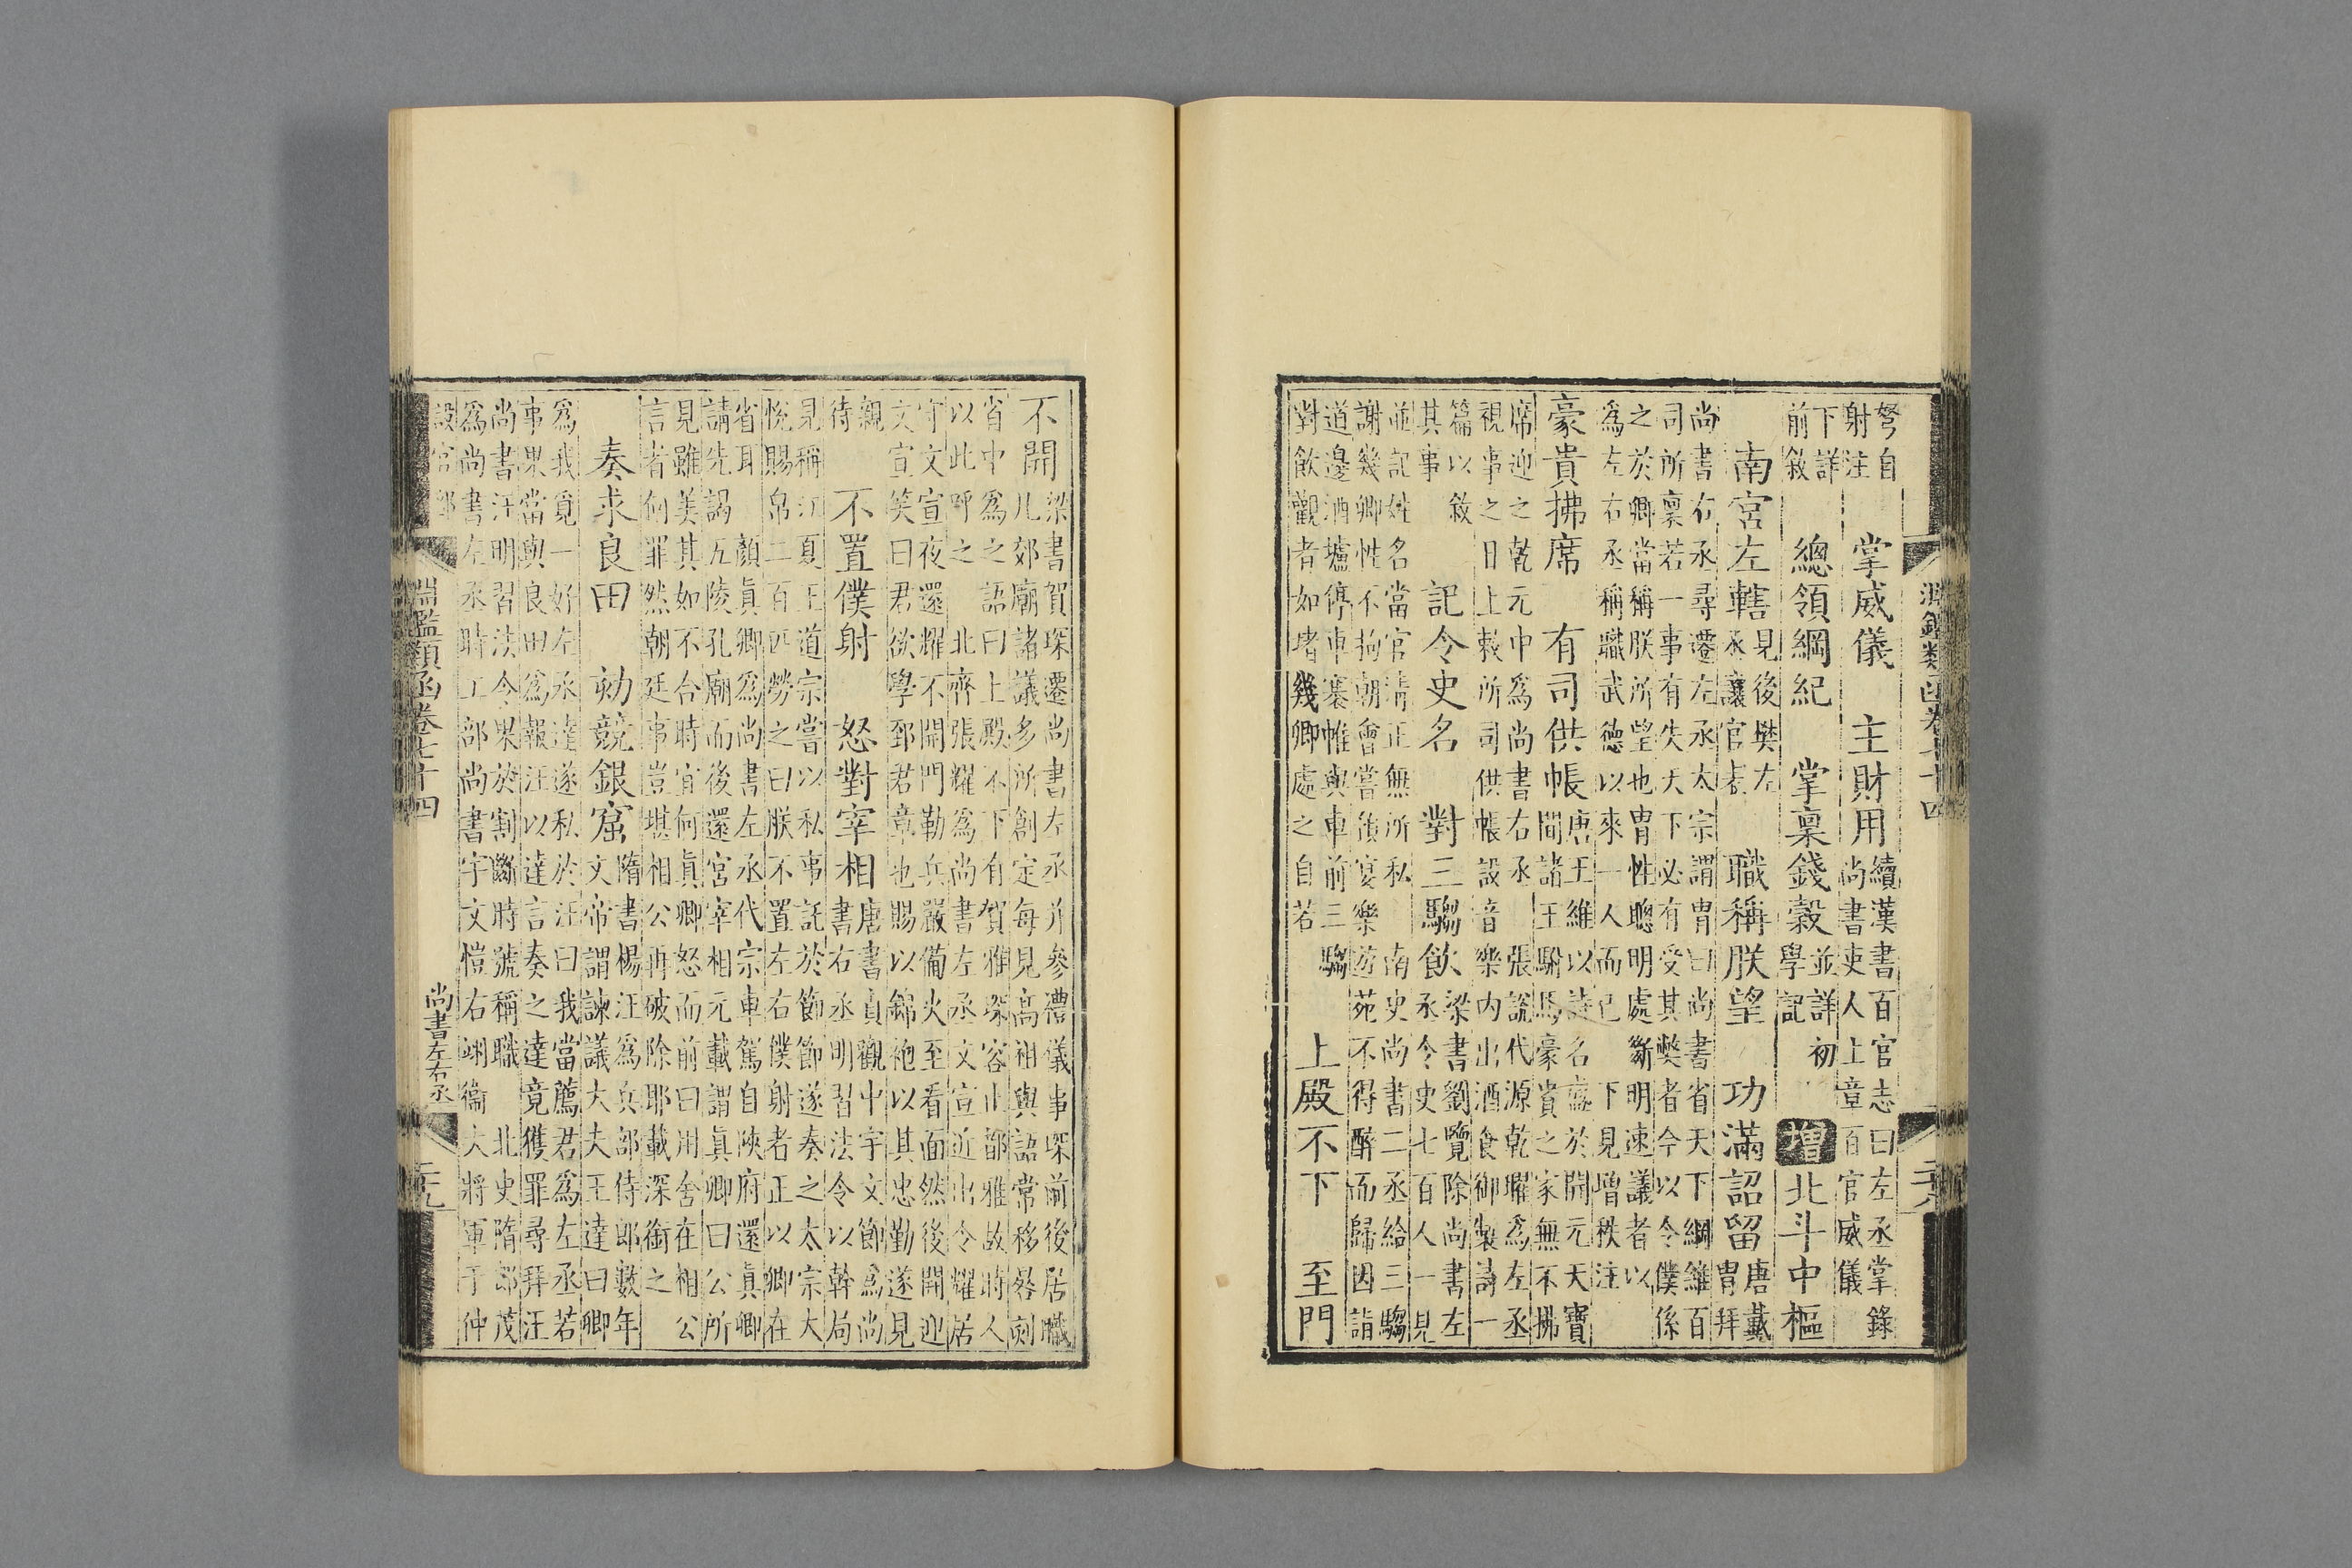 淵鑑類函卷七十四
二十八
弩自
射注
掌威儀　主財用
續漢書百官志曰左丞掌錄
尚書吏人上章百官威儀
下詳
前敘
總領綱紀　掌稟錢穀
並詳初
學記
增北斗中樞
南宮左轄
見後樊左
丞讓官表
職稱朕望　功滿詔留
唐戴
冑拜
尚書右丞尋遷左丞太宗謂冑曰尚書省天下綱維百
司所稟若一事有失天下必有受其弊者今以令僕係
之於卿當稱朕所望也冑性聰明處斷明速議者以
為左右丞稱職武德以來一人而已　下見增秩注
豪貴拂席　有司供帳
唐王維以詩名盛於開元天寶
間諸王駙馬豪貴之家無不拂
席迎之乾元中為尚書右丞　張說代源乾曜為左丞
視事之日上敕所司供帳設音樂内出酒食御製詩一
篇以敘
其事
記令史名　對三騶飲
梁書劉覽除尚書左
丞令史七百人一見
並記姓名當官清正無所私　南史尚書二丞給三騶
謝幾卿性不拘朝會嘗預宴樂遊苑不得醉而歸因詣
道邊酒壚停車褰帷與車前三騶
對飲觀者如堵幾卿處之自若
上殿不下　至門
不開
梁書賀琛遷尚書左丞并參禮儀事琛前後居職
凡郊廟諸議多所創定每見高祖與語常移晷刻
省中為之語曰上殿不下有賀雅琛容止都雅故時人
以此呼之　北齊張耀為尚書左丞文宣近出令耀居
守文宣夜還耀不開門勒兵嚴備火至看面然後開迎
文宣笑曰君欲學郅君章也賜以錦袍以其忠勤遂見
親
待
不置僕射　怒對宰相
唐書貞觀中宇文節為尚
書右丞明習法令以幹局
見稱江夏王道宗嘗以私事託於節節遂奏之太宗大
悅賜帛二百匹勞之曰朕不置左右僕射者正以卿在
省耳　顏真卿為尚書左丞代宗車駕自陝府還真卿
請先謁五陵孔廟而後還宮宰相元載謂真卿曰公所
見雖美其如不合時宜何真卿怒而前曰用舍在相公
言者何罪然朝廷事豈堪相公再破除耶載深銜之
奏求良田　劾競銀窟
隋書楊汪為兵部侍郎數年
文帝謂諫議大夫王達曰卿
為我覓一好左丞達遂私於汪曰我當薦君為左丞若
事果當與良田為報汪以達言奏之達竟獲罪尋拜汪
尚書汪明習法令果於割斷時號稱職　北史隋郎茂
為尚書左丞時工部尚書宇文愷右翊衞大將軍于仲
設官部
淵鑑類函卷七十四
尚書左右丞
二十九